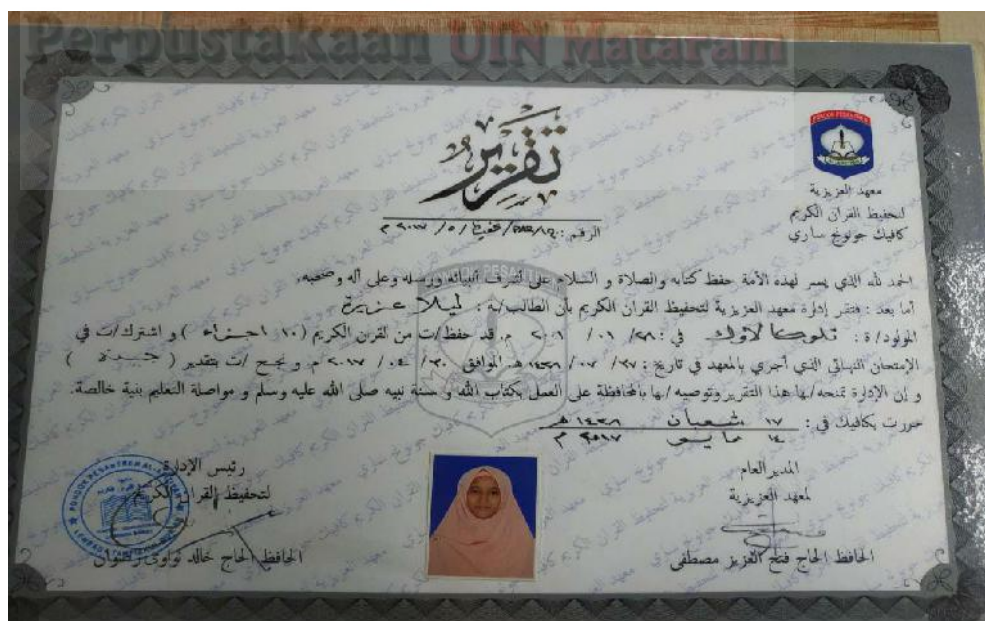 Perpustakaan UIN Mataram
تقرير
معهد العزيزية
لتحفيظ القران الكريم
كافيك جونونج ساري
الرقم :
الحمد لله الذي يسر لهذه الأمة حفظ كتابه والصلاة و السلام على أشرف أنبيائه ورسله وعلى آله و صحبه،
أما بعد : فتقر إدارة معهد العزيزية لتحفيظ القران الكريم بأن الطالب/ة : ليلا عزيزة
المولود/ة : تلوكا لاوك في : ٢٨/ ٠١/ ٢٠٠١ م. قد حفظ/ت من القرن الكريم (١٠ اجزاء) و اشترك/ت في
الإمتحان النهائي الذي أجري بالمعهد في تاريخ : ١٤٣٨ هـ الموافق ٣٠/ ٠٤/ ٢٠١٧ م. و نجح /ت بتقدير ( جيدة )
و إن الإدارة تمنحه/ـها هذا التقرير وتوصيه /ـها بالمحافظة على العمل بكتاب الله و سنة نبيه صلى الله عليه وسلم و مواصلة التعليم بنية خالصة.
حررت بكافيك في : ١٧ شعبان ١٤٣٨ هـ
١٤ مايو ٢٠١٧ م
المدير العام
لمعهد العزيزية
الحافظ الحاج فتح العزيز مصطفى
رئيس الإدارة
لتحفيظ القران الكريم
الحافظ الحاج خالد نواوى رضوان